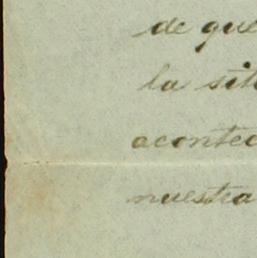 de que
la sit
acontec
nuestra